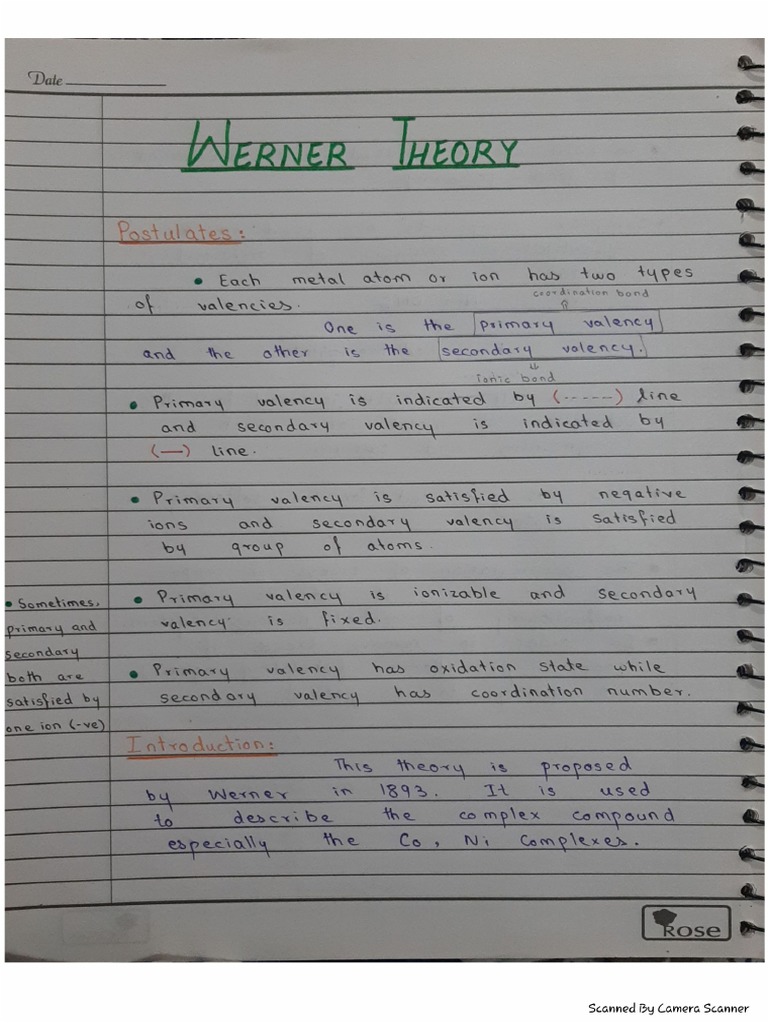 Date
WERNER THEORY
Postulates:
• Each metal atom or ion has two types
of valencies.
coordination bond
⇑
One is the primary valency
and the other is the secondary valency.
↓
ionic bond
• Primary valency is indicated by (-----) line
and secondary valency is indicated by
(—) line.
• Primary valency is satisfied by negative
ions and secondary valency is satisfied
by group of atoms.
• Primary valency is ionizable and secondary
valency is fixed.
• Sometimes,
primary and
secondary
both are
satisfied by
one ion (-ve)
• Primary valency has oxidation state while
secondary valency has coordination number.
Introduction:
This theory is proposed
by Werner in 1893. It is used
to describe the complex compound
especially the Co, Ni complexes.
ROSE
Scanned By Camera Scanner